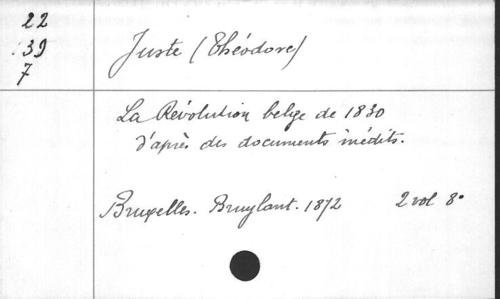 22
39
7
Juste (Théodore)
La Révolution belge de 1830
d'après des documents inédits.
Bruxelles. Bruylant. 1872 2 vol 8°